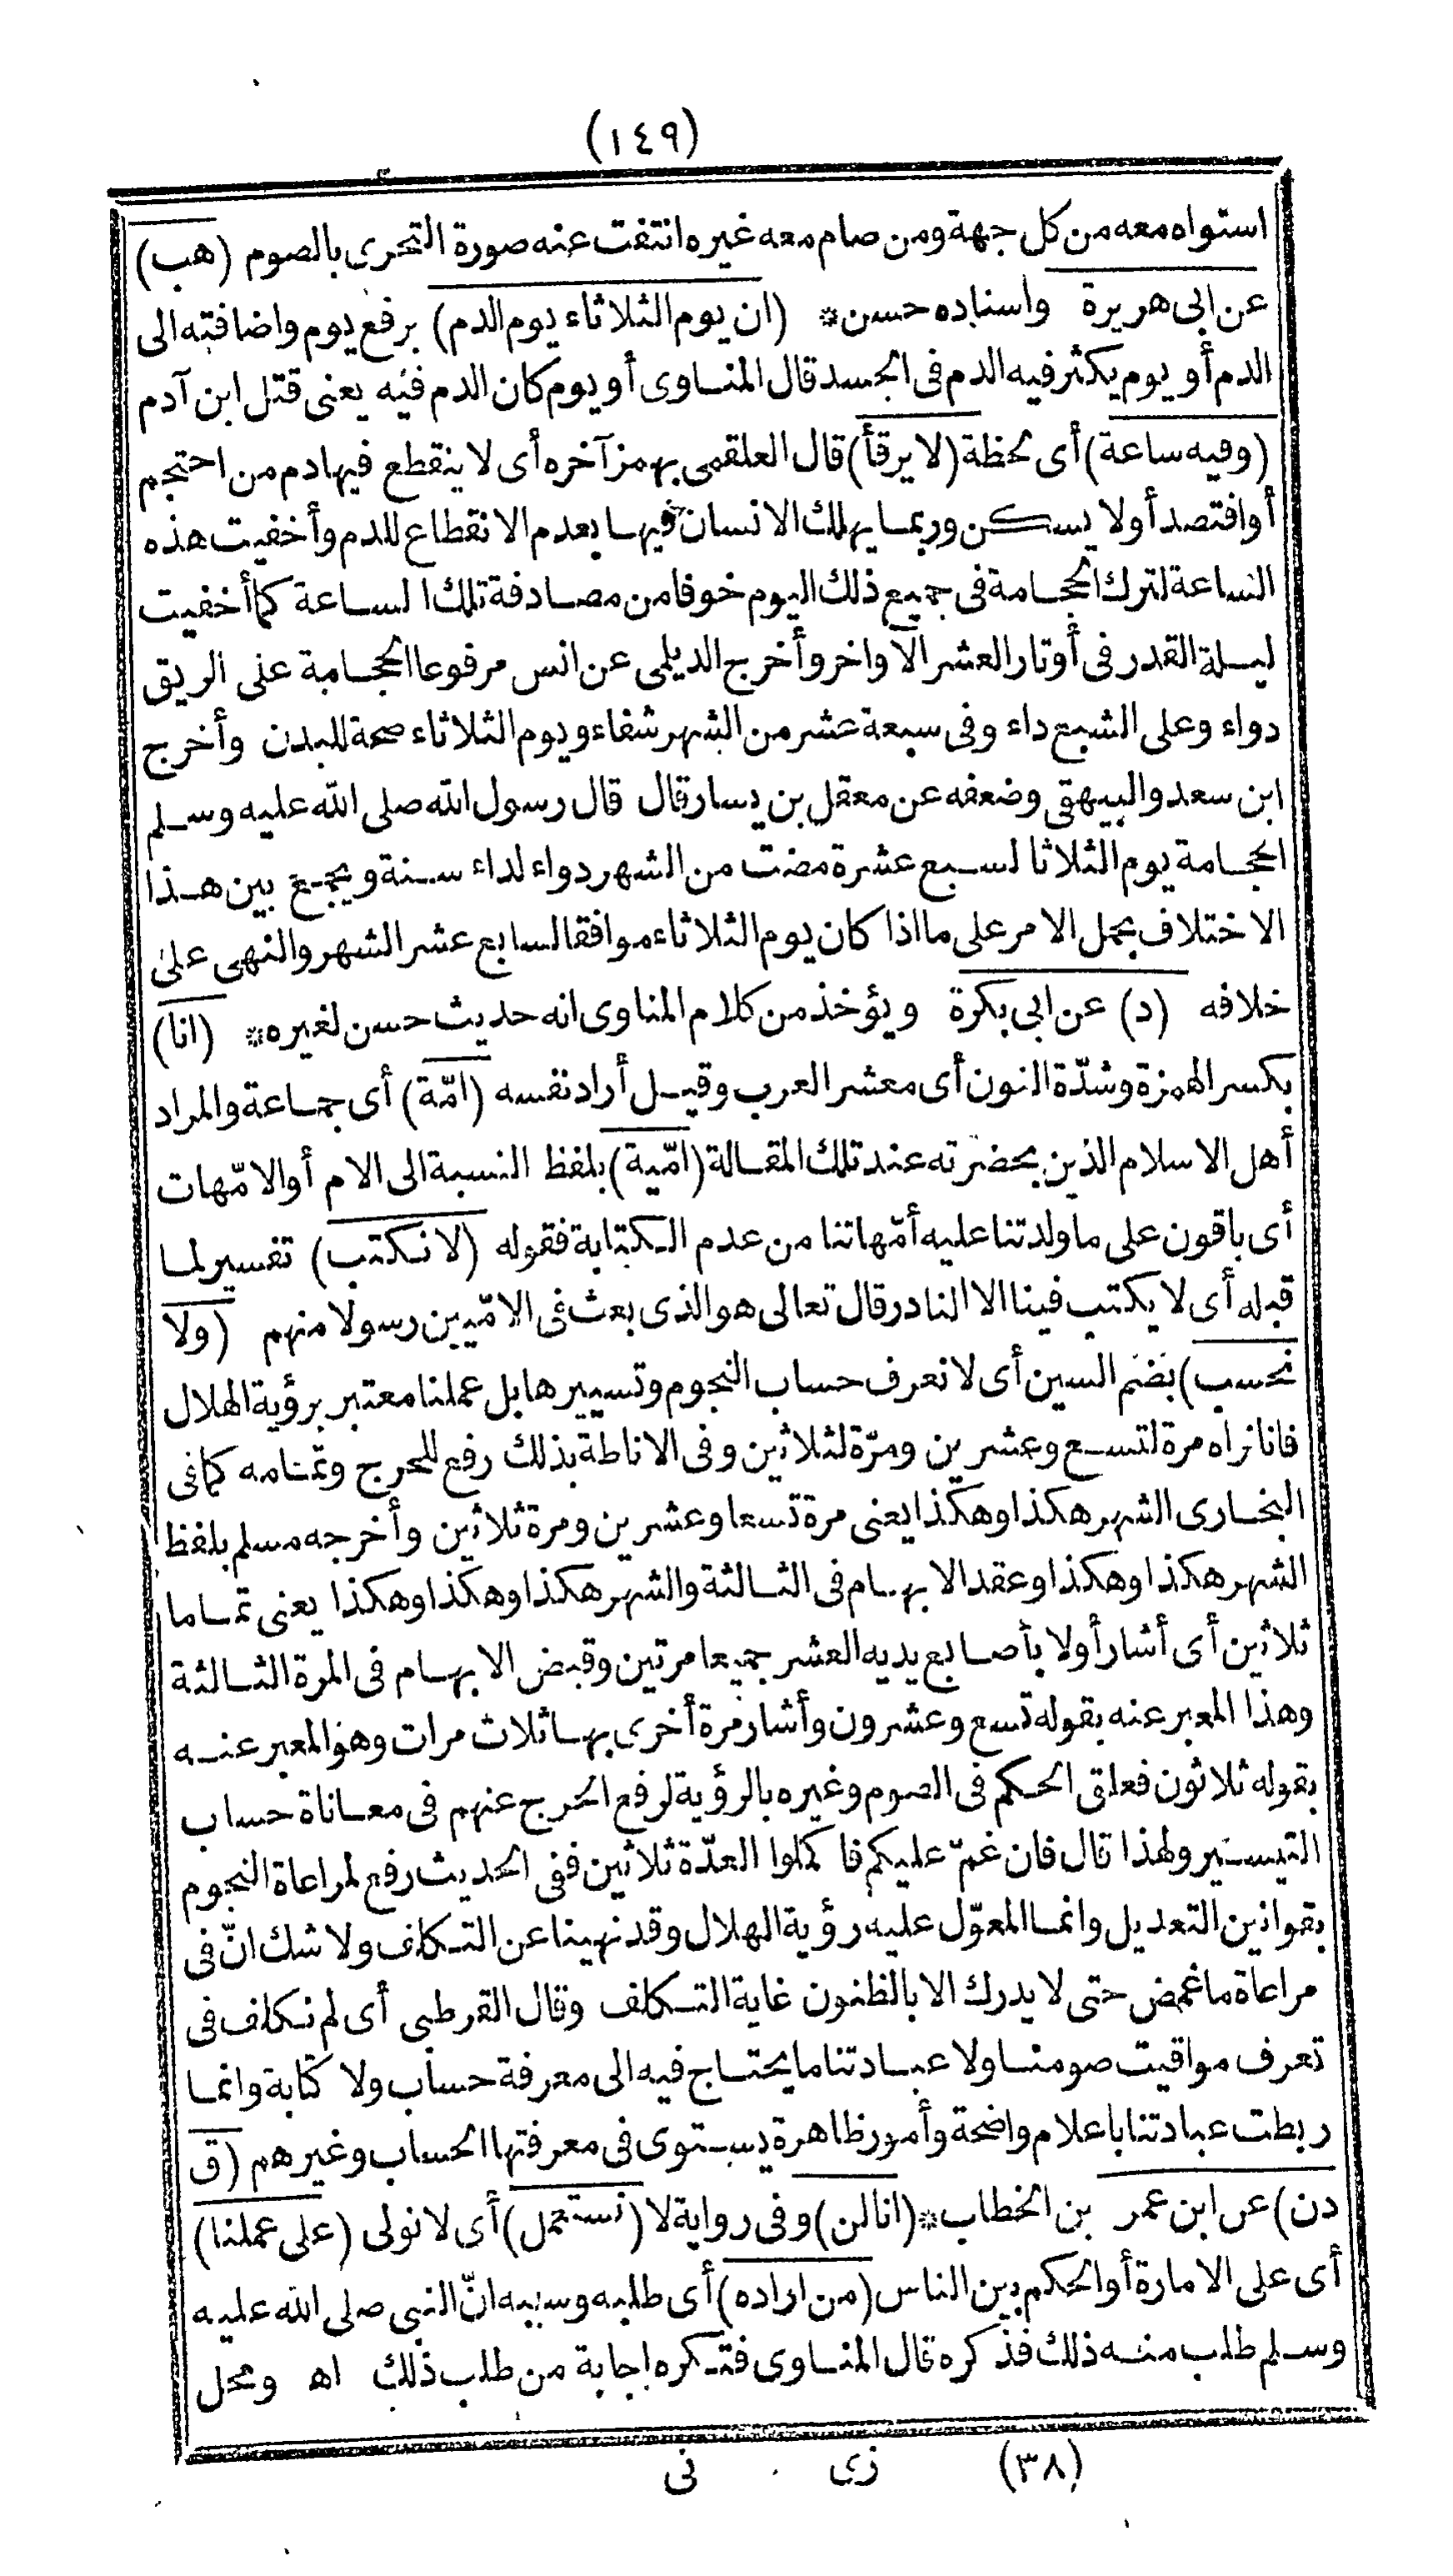 (١٤٩)
استواه معه من كل جهة ومن صام معه غيره انتفت عنه صورة التحرى بالصوم (هب)
عن ابى هريرة واسناده حسن* (ان يوم الثلاثاء يوم الدم) برفع يوم واضافته الى
الدم أو يوم يكثر فيه الدم فى الجسد قال المناوى أو يوم كان الدم فيه يعنى قتل ابن آدم
(وفيه ساعة) أى لحظة (لا يرقأ) قال العلقمى بهمز آخره أى لا ينقطع فيها دم من احتجم
أو افتصد أو لا يسكن وربما يهلك الانسان فيها بعدم الانقطاع للدم وأخفيت هذه
الساعة لترك الحجامة فى جميع ذلك اليوم خوفا من مصادفة تلك الساعة كما أخفيت
ليلة القدر فى أوتار العشر الاواخر وأخرج الديلمى عن انس مرفوعا الحجامة على الريق
دواء وعلى الشبع داء وفى سبعة عشر من الشهر شفاء ويوم الثلاثاء صحة للبدن وأخرج
ابن سعد والبيهقى وضعفه عن معقل بن يسار قال قال رسول الله صلى الله عليه وسلم
الحجامة يوم الثلاثا لسبع عشرة مضت من الشهر دواء لداء سنة ويجمع بين هذا
الاختلاف بحمل الامر على ما اذا كان يوم الثلاثاء موافقا لسابع عشر الشهر والنهى على
خلافه (د) عن ابى بكرة ويؤخذ من كلام المناوى انه حديث حسن لغيره* (انا)
بكسر الهمزة وشدّة النون أى معشر العرب وقيل أراد نفسه (امّة) أى جماعة والمراد
أهل الاسلام الذين بحضرته عند تلك المقالة (امّية) بلفظ النسبة الى الام أو الامّهات
أى باقون على ما ولدتنا عليه أمّهاتنا من عدم الكتابة فقوله (لا نكتب) تفسير لما
قبله أى لا يكتب فينا الا النادر قال تعالى هو الذى بعث فى الامّيين رسولا منهم (ولا
نحسب) بضم السين أى لا نعرف حساب النجوم وتسييرها بل عملنا معتبر برؤية الهلال
فانا نراه مرة لتسع وعشرين ومرّة لثلاثين وفى الاناطة بذلك رفع للحرج وتمامه كما فى
البخارى الشهر هكذا وهكذا يعنى مرة تسعا وعشرين ومرة ثلاثين وأخرجه مسلم بلفظ
الشهر هكذا وهكذا وعقد الابهام فى الثالثة والشهر هكذا وهكذا وهكذا يعنى تماما
ثلاثين أى أشار أولا بأصابع يديه العشر جميعا مرتين وقبض الابهام فى المرة الثالثة
وهذا المعبر عنه بقوله تسع وعشرون وأشار مرة أخرى بها ثلاث مرات وهو المعبر عنه
بقوله ثلاثون فعلق الحكم فى الصوم وغيره بالرؤية لرفع الحرج عنهم فى معاناة حساب
التيسير ولهذا قال فان غمّ عليكم فا كملوا العدّة ثلاثين ففى الحديث رفع لمراعاة النجوم
بقوانين التعديل وانما المعوّل عليه رؤية الهلال وقد نهينا عن التكلف ولا شك انّ فى
مراعاة ما غمض حتى لا يدرك الا بالظنون غاية التكلف وقال القرطبى أى لم نكلف فى
تعرف مواقيت صومنا ولا عبادتنا ما يحتاج فيه الى معرفة حساب ولا كتابة وانما
ربطت عبادتنا باعلام واضحة وأمور ظاهرة يستوى فى معرفتها الحساب وغيرهم (ق
دن) عن ابن عمر بن الخطاب* (انا لن) وفى رواية لا (نستعمل) أى لا نولى (على عملنا)
أى على الامارة أو الحكم بين الناس (من اراده) أى طلبه وسببه انّ النبى صلى الله عليه
وسلم طلب منه ذلك فذكره قال المناوى فتكره اجابة من طلب ذلك اه ومحل
(٣٨) زى نى